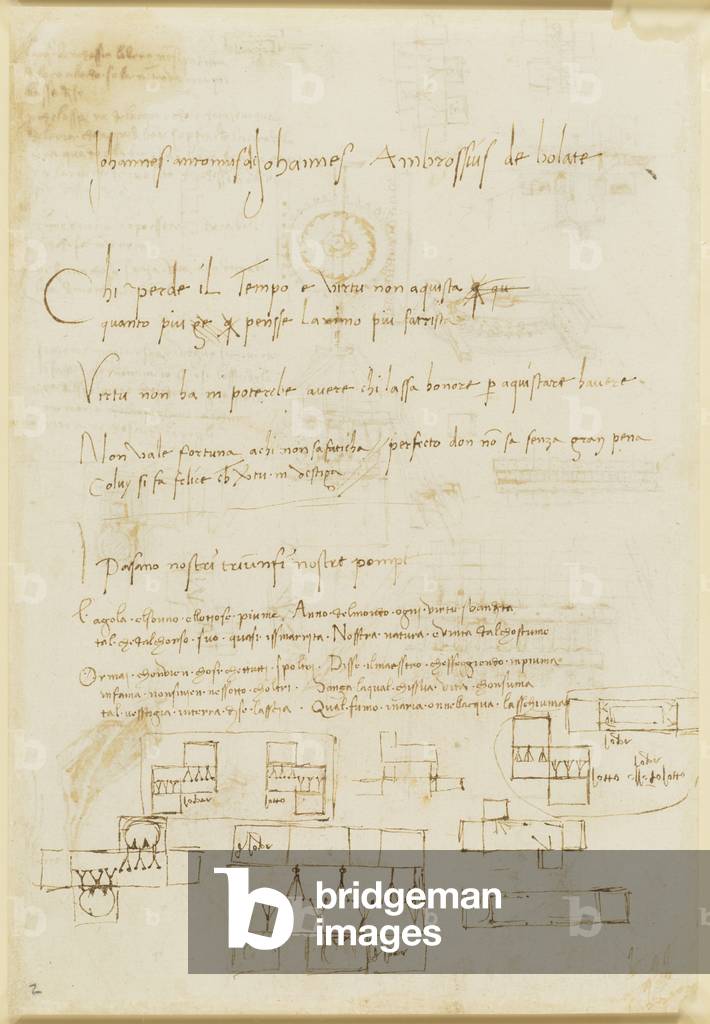 Johannes antonius di Johannes Ambrosius de bolate
Chi perde il Tempo e virtu non aquista qu
quanto piu pe q pensse lanimo piu satrista
Virtu non ha in poterche avere chi lassa honore p aquistare havere
Non vale fortuna achi non safaticha / perfecto don no sa senza gran pena
Coluy si fa felice ch vtu investiga
Pasano nostri triunfi nostre pompe
La gola elsonno ellotiose piume Anno delmondo ogni virtu sbandita
tal chedalchorso suo quasi issmarrita Nostra natura evinta dalchostume
Ormai chonvien chosi chettutti spoltri Disse ilmaestro chesseggiendo inpiuma
infama nonsivien nessotto choltri Sanza laqual chissua vita chonsuma
tal vesstigia interra dise lasscia Qual fumo inaria onnellacqua lasschiuma
2
bridgeman
images